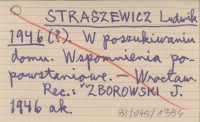 STRASZEWICZ Ludwik
1946 (?). W poszukiwaniu
domu. Wspomnienia po-
powstaniowe. – Wrocław.
Rec.: ZBOROWSKI J.
1946 ak.